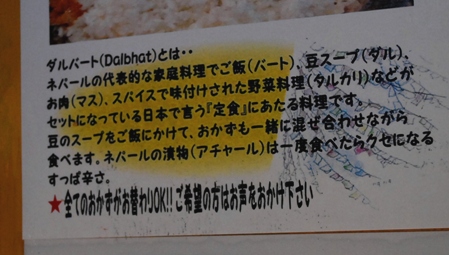 ダルバート(Dalbhat)とは・・
ネパールの代表的な家庭料理でご飯(バート)、豆スープ(ダル)、
お肉(マス)、スパイスで味付けされた野菜料理(タルカリ)などが
セットになっている日本で言う『定食』にあたる料理です。
豆のスープをご飯にかけて、おかずも一緒に混ぜ合わせながら
食べます。ネパールの漬物(アチャール)は一度食べたらクセになる
すっぱ辛さ。
★全てのおかずがお替わりOK!!ご希望の方はお声をおかけ下さい